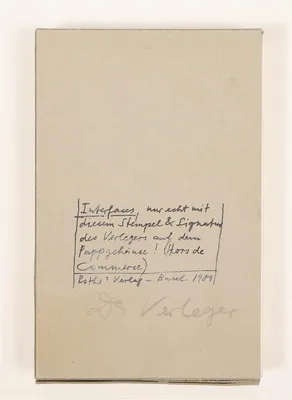 Interfaces, nur echt mit
diesem Stempel & Signatur
des Verlegers auf dem
Pappgehäuse! (Hors de
Commerce)
Roths' Verlag - Basel 1989
Der Verleger